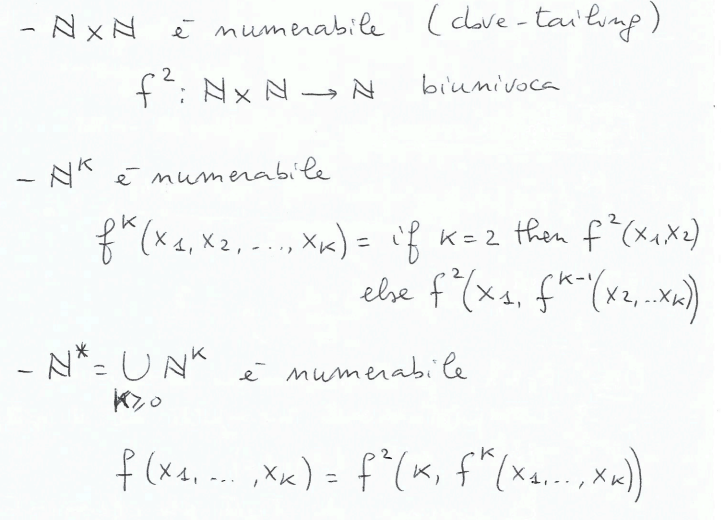 - ℕ x ℕ è numerabile (dove-tailing)
f²: ℕ x ℕ → ℕ biunivoca
- ℕᴷ è numerabile
fᴷ(x₁, x₂, ..., xₖ) = if K = 2 then f²(x₁,x₂)
else f²(x₁, fᴷ⁻¹(x₂,..xₖ))
- ℕ* = ∪ ℕᴷ è numerabile
K⩾0
f(x₁, ... ,xₖ) = f²(K, fᴷ(x₁..., xₖ))